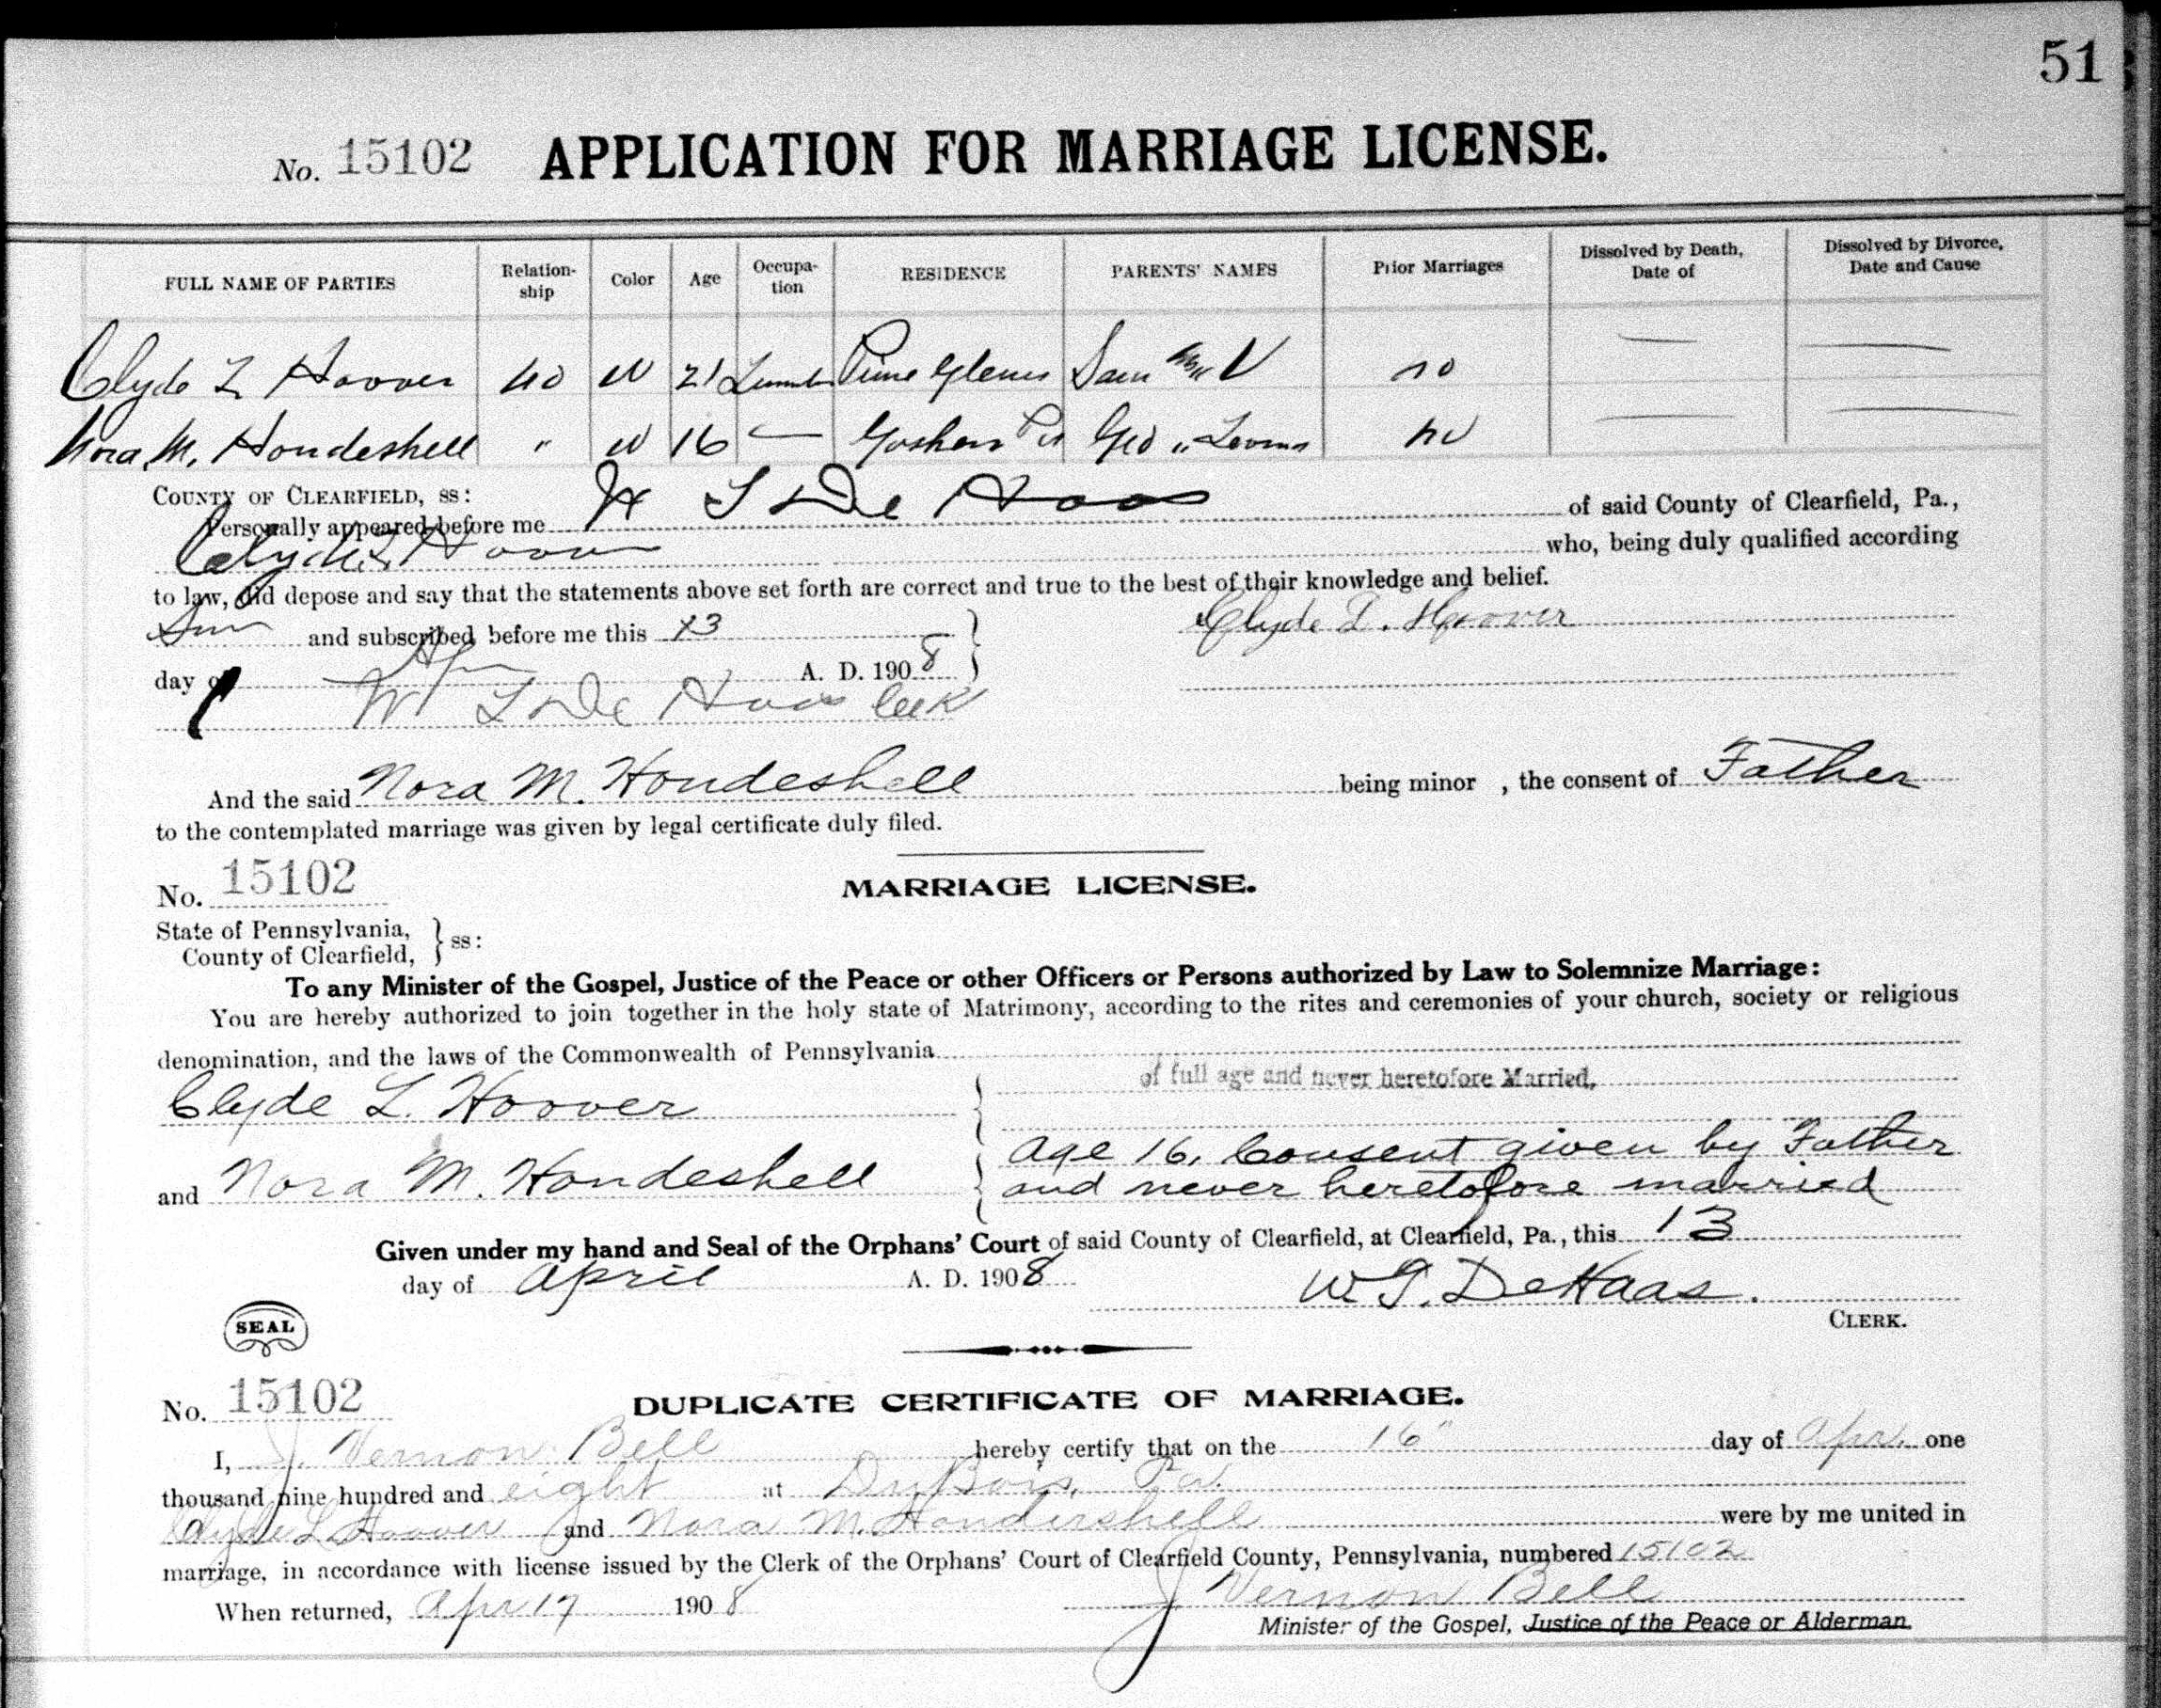 51
No. 15102 APPLICATION FOR MARRIAGE LICENSE.
FULL NAME OF PARTIES Relation-ship Color Age Occupa-tion RESIDENCE PARENTS' NAMES Prior Marriages Dissolved by Death, Date of Dissolved by Divorce, Date and Cause
Clyde L Hoover no W 21 Pine Glenn Sam no — —
Nora M. Houdeshell " W 16 — Goshen Pa Geo " no — —
COUNTY OF CLEARFIELD, ss:
Personally appeared before me W T De Haas of said County of Clearfield, Pa.,
Clyde L Hoover who, being duly qualified according
to law, did depose and say that the statements above set forth are correct and true to the best of their knowledge and belief.
and subscribed before me this 13 } Clyde L. Hoover
day of Apr A. D. 1908
W T De Haas Clerk
And the said Nora M. Houdeshell being minor , the consent of Father
to the contemplated marriage was given by legal certificate duly filed.
No. 15102 MARRIAGE LICENSE.
State of Pennsylvania,
County of Clearfield, } ss:
To any Minister of the Gospel, Justice of the Peace or other Officers or Persons authorized by Law to Solemnize Marriage:
You are hereby authorized to join together in the holy state of Matrimony, according to the rites and ceremonies of your church, society or religious
denomination, and the laws of the Commonwealth of Pennsylvania
Clyde L. Hoover of full age and never heretofore Married,
and Nora M. Houdeshell age 16, Consent given by Father
and never heretofore married
Given under my hand and Seal of the Orphans' Court of said County of Clearfield, at Clearfield, Pa., this 13
day of April A. D. 1908 W. T. DeHaas.
SEAL CLERK.
No. 15102 DUPLICATE CERTIFICATE OF MARRIAGE.
I, J. Vernon Bell hereby certify that on the 16" day of Apr. one
thousand nine hundred and eight at DuBois, Pa.
Clyde L Hoover and Nora M. Houdershell were by me united in
marriage, in accordance with license issued by the Clerk of the Orphans' Court of Clearfield County, Pennsylvania, numbered 15102
When returned, Apr 17 1908 J Vernon Bell
Minister of the Gospel, Justice of the Peace or Alderman.